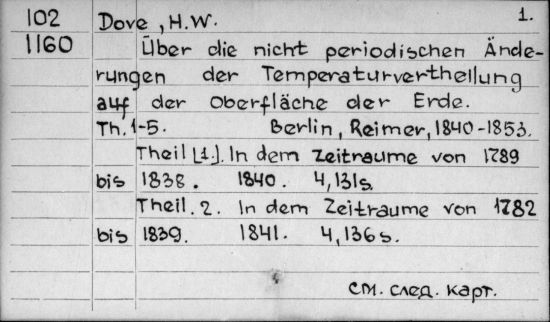 102 Dove, H.W. 1.
1160 Über die nicht periodischen Ände-
rungen der Temperaturvertheilung
auf der Oberfläche der Erde.
Th. 1-5. Berlin, Reimer, 1840-1853.
Theil [1.]. In dem Zeitraume von 1789
bis 1838. 1840. 4,131s.
Theil. 2. In dem Zeitraume von 1782
bis 1839. 1841. 4,136s.
см. след. карт.